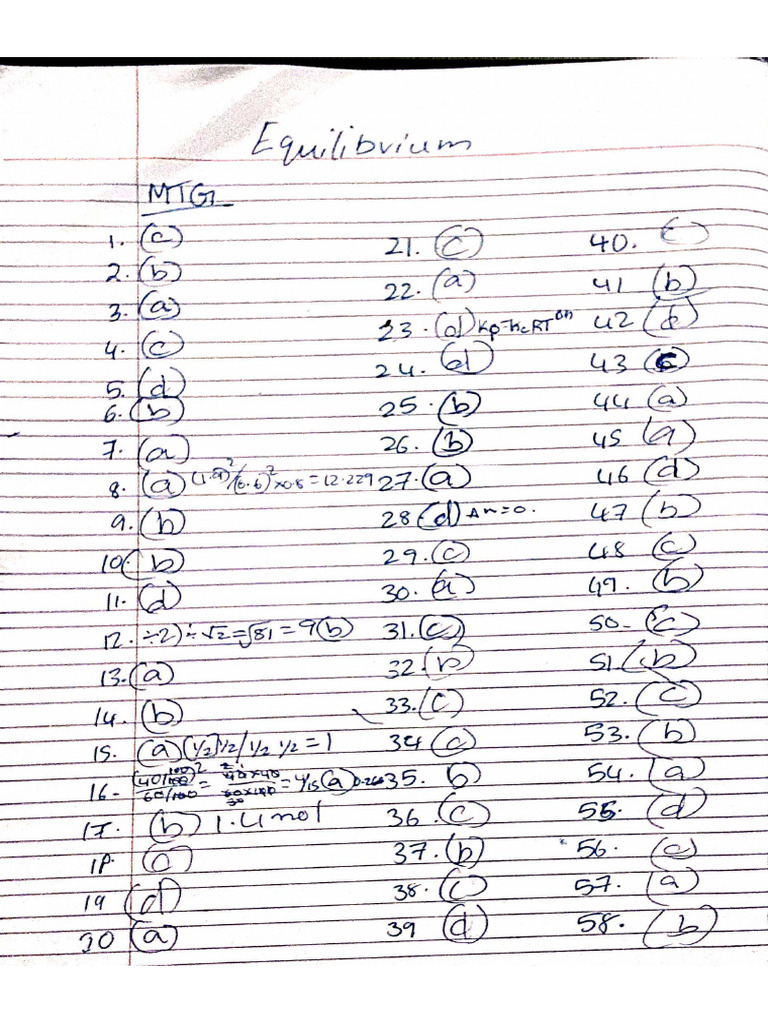 Equilibrium
MTG
1. (c)
2. (b)
3. (a)
4. (c)
5. (d)
6. (b)
7. (a)
8. (a) (1.9)²/(0.6)²×0.8=12.229
9. (b)
10. (b)
11. (d)
12. ÷2)÷√2=√81=9(b)
13. (a)
14. (b)
15. (a) (1/2)1/2/1/2 1/2=1
16. = 4/15 (a)
17. (b) 1.4mol
18.
19 (d)
20 (a)
21. (c)
22. (a)
23. (d) Kp=KcRT
24. (d)
25. (b)
26. (b)
27. (a)
28 (d) Δn=0.
29. (c)
30. (a)
31. (c)
32. (b)
33. (c)
34 (c)
35. b
36. (c)
37. (b)
38. (c)
39 (d)
40. c
41 (b)
42
43 (c)
44 (a)
45 (a)
46 (d)
47 (b)
48 (c)
49. (b)
50. (c)
51. (b)
52. (c)
53. (b)
54. (a)
55. (d)
56. (c)
57. (a)
58. (b)